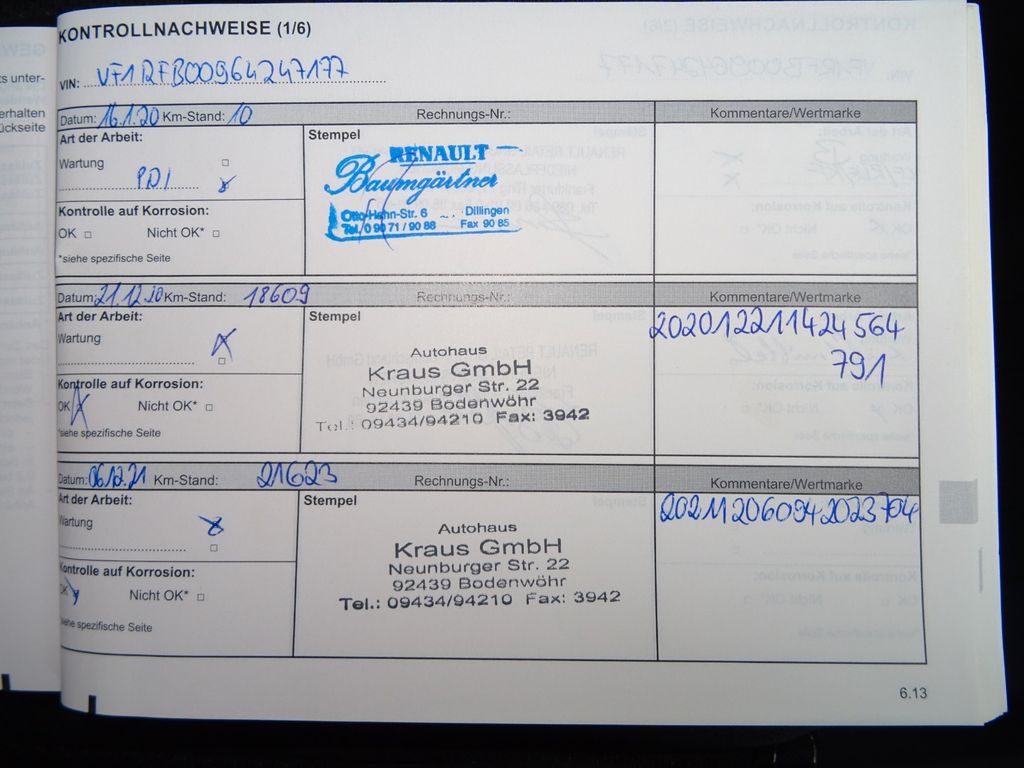 KONTROLLNACHWEISE (1/6)
VIN: VF1RFB00964247177
Datum: 16.1.20 Km-Stand: 10 Rechnungs-Nr.: Kommentare/Wertmarke
Art der Arbeit:
Stempel
Wartung
PDI
RENAULT
Baumgärtner
Otto-Hahn-Str. 6 Dillingen
Tel. 0 90 71 / 90 88 Fax 90 85
Kontrolle auf Korrosion:
OK Nicht OK*
*siehe spezifische Seite
Datum: 21.12.20 Km-Stand: 18609 Rechnungs-Nr.: Kommentare/Wertmarke
Art der Arbeit:
Stempel
Wartung
Autohaus
Kraus GmbH
Neunburger Str. 22
92439 Bodenwöhr
Tel.: 09434/94210 Fax: 3942
2020122111424564
791
Kontrolle auf Korrosion:
OK Nicht OK*
*siehe spezifische Seite
Datum: 06.12.21 Km-Stand: 21623 Rechnungs-Nr.: Kommentare/Wertmarke
Art der Arbeit:
Stempel
Wartung
Autohaus
Kraus GmbH
Neunburger Str. 22
92439 Bodenwöhr
Tel.: 09434/94210 Fax: 3942
202112060942023704
Kontrolle auf Korrosion:
OK Nicht OK*
*siehe spezifische Seite
6.13
ts unter-
erhalten
ückseite